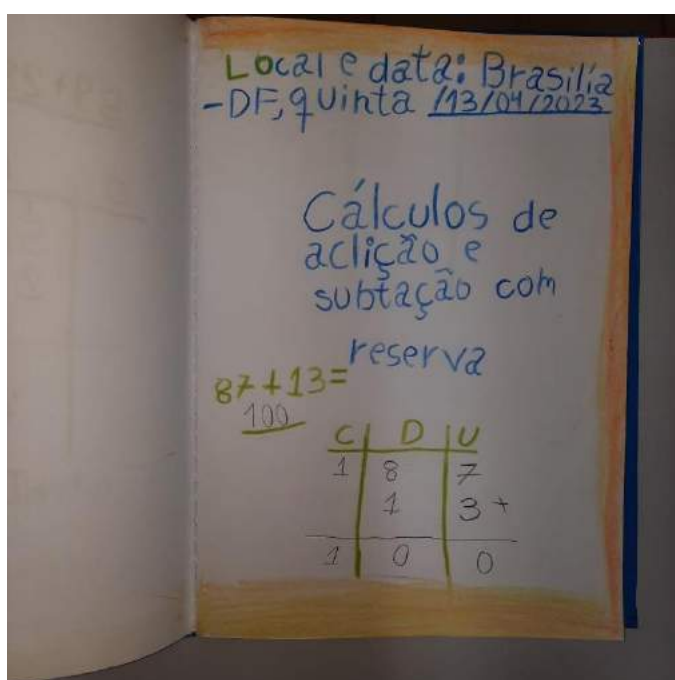 Local e data: Brasilía
-DF, quinta /13/04/2023
Cálculos de
aclição e
subtação com
reserva
87+13=
100
C D U
1 8 7
1 3 +
1 0 0